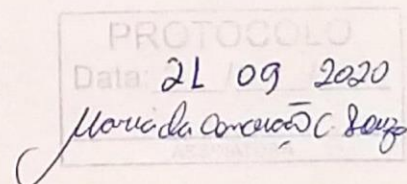 PROTOCOLO
Data: 21 09 2020
Maria da Conceição C. Souza